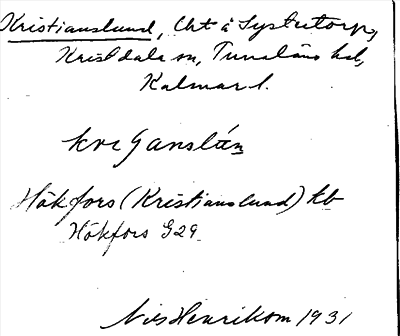 Kristianslund, Aht å Systertorp,
Kristdala sn, Tunaläns hd,
Kalmar l.
Hökfors (Kristianslund) kb
Hökfors G29
Nils Henrikson 1931